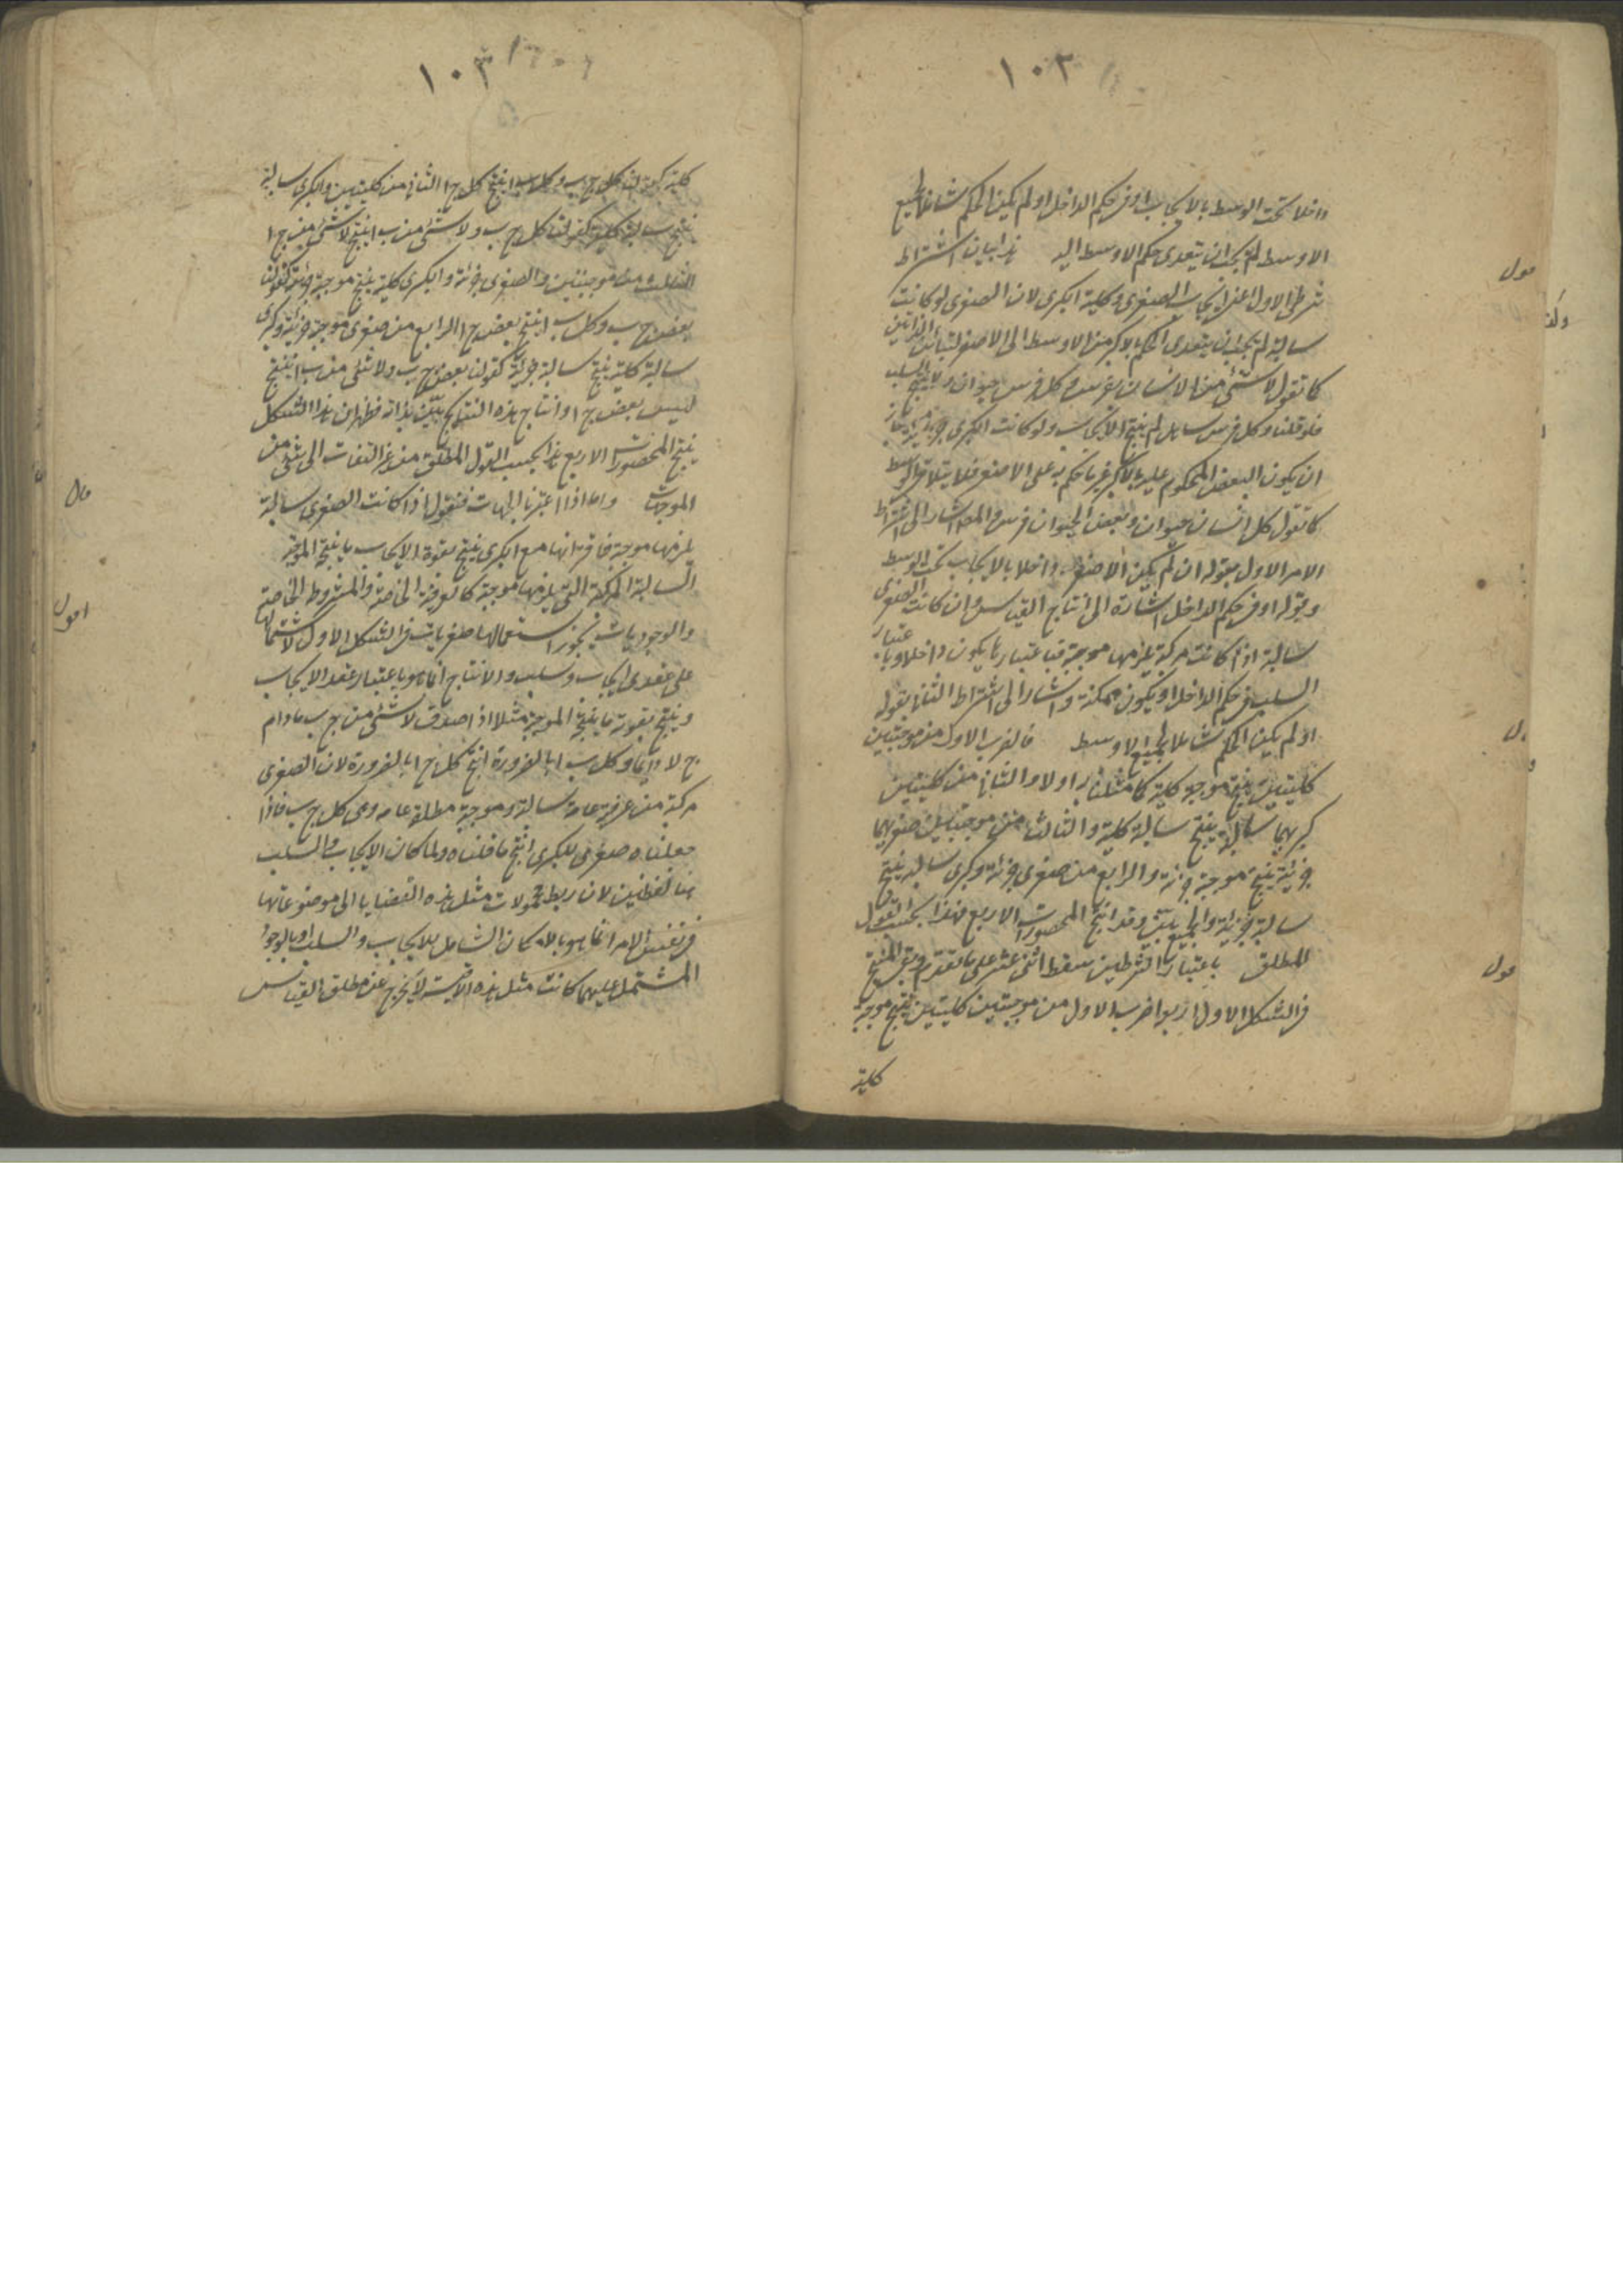 ١٠٣
داخلا تحت الوسط بالايجاب او فى حكم الداخل او لم يكن الحكم شاملا لجميع
الاوسط لم يجب ان يتعدى حكم الاوسط اليه هذا بيان اشتراط
شرطى الاول اعنى ايجاب الصغرى وكلية الكبرى لان الصغرى لو كانت
سالبة لم يجب ان يتعدى الحكم بالاكبر من الاوسط الى الاصغر لتباين الذاتين
كما تقول لا شئ من الانسان بفرس وكل فرس حيوان ولا ينتج السلب
فلو قلنا وكل فرس صاهل لم ينتج الايجاب ولو كانت الكبرى جزئية جاز
ان يكون البعض المحكوم عليه بالاكبر غير ما حكم به على الاصغر فلا يتلاقى الوسط
كما تقول كل انسان حيوان وبعض الحيوان فرس والمص اشار الى اشتراط
الامر الاول بقوله ان لم يكن الاصغر داخلا بالايجاب تحت الوسط
وبقوله او فى حكم الداخل اشارة الى انتاج القياس وان كانت الصغرى
سالبة اذا كانت مركبة يلزمها موجبة فباعتبارها يكون داخلا وباعتبار
السلب فى حكم الداخل او يكون ممكنة واشار الى اشتراط الثانى بقوله
او لم يكن الحكم شاملا لجميع الاوسط فالضرب الاول من موجبتين
كليتين ينتج موجبة كلية كما مثلنا به اولا والثانى من كليتين
كبريهما سالبة ينتج سالبة كلية والثالث من موجبتين صغريهما
جزئية ينتج موجبة جزئية والرابع من صغرى جزئية وكبرى سالبة ينتج
سالبة جزئية والجميع بين وقد انتج المحصورات الاربع فهذا بحسب القول
المطلق باعتبار الشرطين سقط اثنى عشر على ما تقدم وبقى المنتج
فى الشكل الاول اربع اضرب الاول من موجبتين كليتين ينتج موجبة
كلية
١٠٣
كلية كقولنا كل ج ب وكل ب ا ينتج كل ج ا الثانى من كليتين والكبرى سالبة
ينتج سالبة كلية كقولنا كل ج ب ولا شئ من ب ا ينتج لا شئ من ج ا
الثالث من موجبتين والصغرى جزئية والكبرى كلية ينتج موجبة جزئية كقولنا
بعض ج ب وكل ب ا ينتج بعض ج ا الرابع من صغرى موجبة جزئية وكبرى
سالبة كلية ينتج سالبة جزئية كقولنا بعض ج ب ولا شئ من ب ا ينتج
ليس بعض ج ا وانتاج هذه النتائج بين بذاته فظهر ان هذا الشكل
ينتج المحصورات الاربع هذا بحسب القول المطلق من غير التفات الى شئ من
الموجهات واما اذا اعتبرنا الجهات فنقول اذا كانت الصغرى سالبة
يلزمها موجبة فاقترانها مع الكبرى ينتج بقوة الايجاب ما ينتج الموجبة
السالبة المركبة التى يلزمها موجبة كالعرفية الخاصة والمشروطة الخاصة
والوجوديات يجوز استعمالها صغريات فى الشكل الاول لاشتمالها
على عقدى ايجاب وسلب والانتاج انما هو باعتبار عقد الايجاب
وينتج بقوته ما ينتج الموجبة مثلا اذا صدق لا شئ من ج ب ما دام
ج لا دائما وكل ب ا بالضرورة انتج كل ج ا بالضرورة لان الصغرى
مركبة من عرفية عامة سالبة وموجبة مطلقة عامة وهى كل ج ب فاذا
جعلناه صغرى للكبرى انتج ما قلناه ولما كان الايجاب والسلب
هنا لفظيين لان ربط محمولات مثل هذه القضايا الى موضوعاتها
فى نفس الامر انما هو بالامكان الشامل للايجاب والسلب او بالوجود
المشتمل عليهما كانت مثل هذه الاقيسة لا يخرج عن مطلق القياس